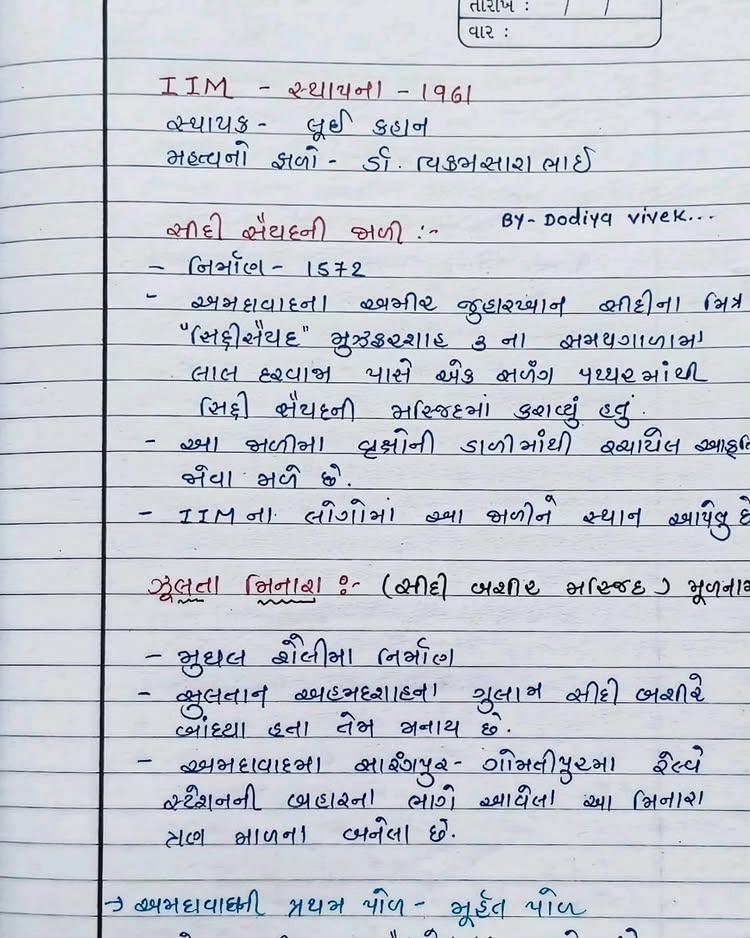 તારીખ : / /
વાર :
IIM - સ્થાપના - 1961
સ્થાપક - લૂઈ કહાન
મહત્વનો ફાળો - ડૉ. વિક્રમસારાભાઈ
સીદી સૈયદની જાળી :-
BY- Dodiya vivek...
- નિર્માણ - 1572
- અમદાવાદના અમીર જુહારખાન સીદીના મિત્ર
"સિદ્દીસૈયદ" મુઝફરશાહ ૩ ના સમયગાળામાં
લાલ દરવાજા પાસે એક સળંગ પથ્થરમાંથી
સિદ્દી સૈયદની મસ્જિદમાં કરાવ્યું હતું.
- આ જાળીમા વૃક્ષોની ડાળીમાંથી રચાયેલ આકૃતિ
જોવા મળે છે.
- IIM ના લોગોમાં આ જાળીને સ્થાન આપેલુ છે
ઝૂલતા મિનારા :- (સીદી બશીર મસ્જિદ) મૂળનામ
- મુઘલ શૈલીમા નિર્માણ
- સુલતાન અહમદશાહના ગુલામ સીદી બશીરે
બાંધ્યા હતા તેમ મનાય છે.
- અમદાવાદમા સારંગપુર - ગોમતીપુરમા રેલ્વે
સ્ટેશનની બહારના ભાગે આવેલા આ મિનારા
ત્રણ માળના બનેલા છે.
→ અમદાવાદની પ્રથમ પોળ - મૂર્હત પોળ